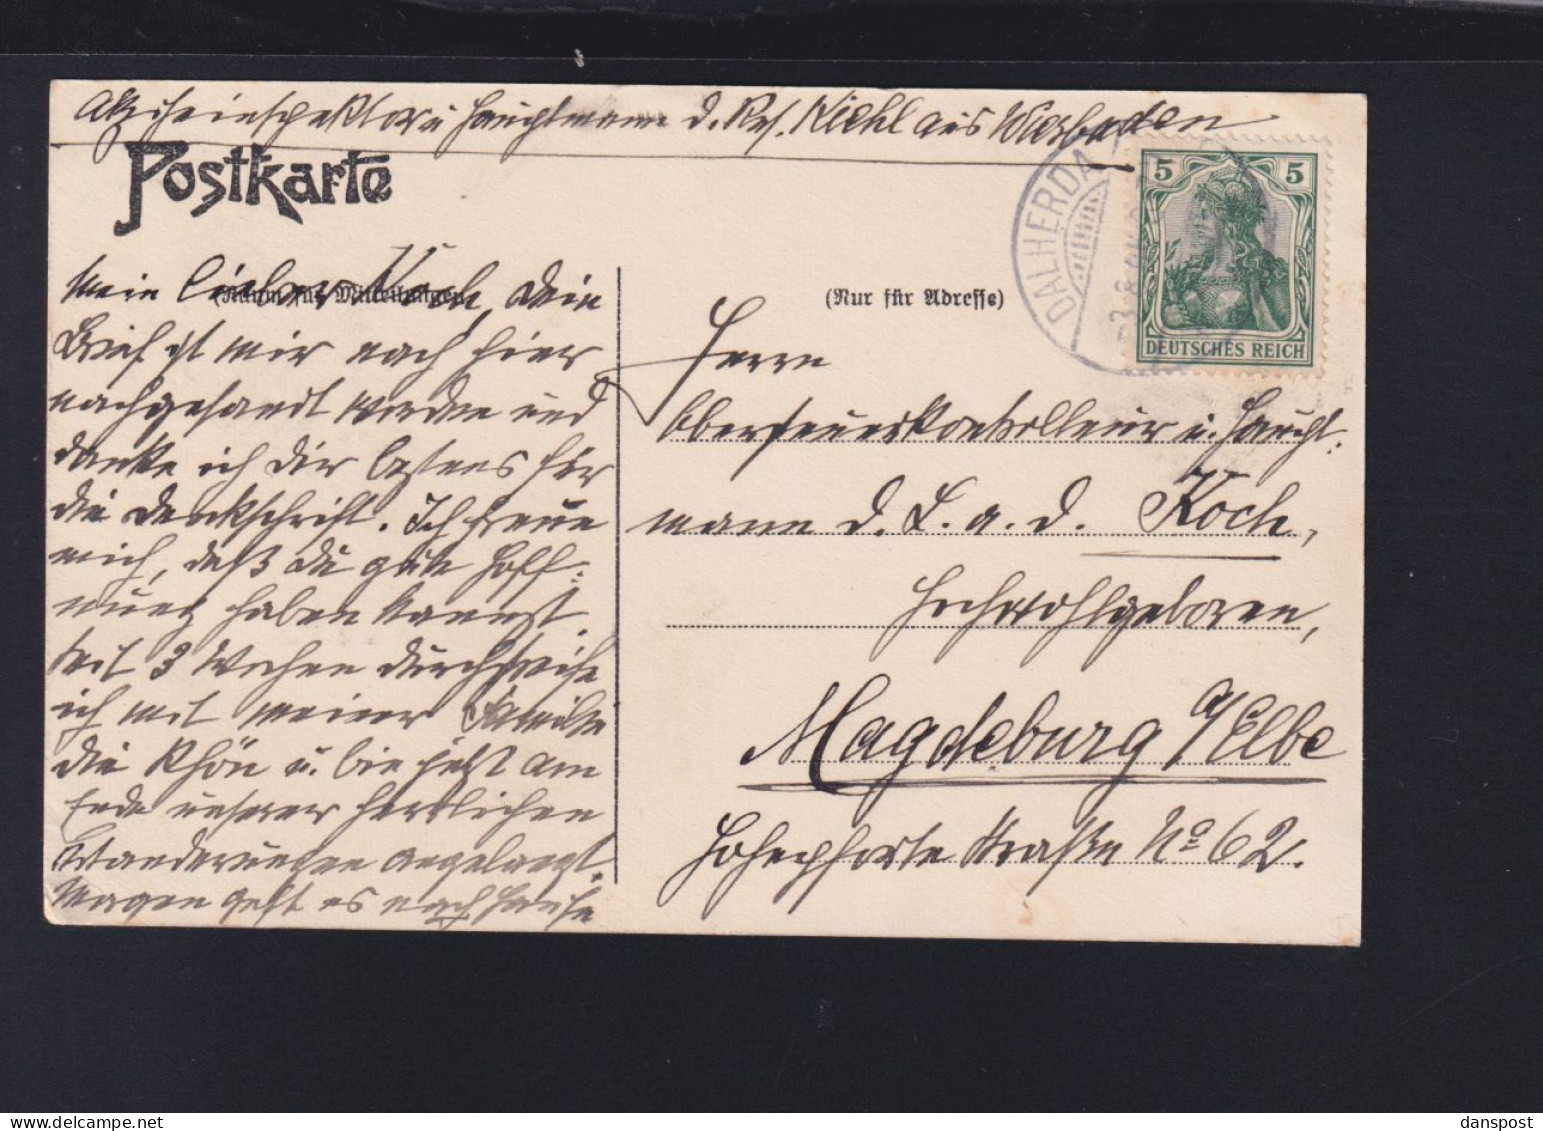 Akziseinspektor u Hauptmann d. Res. Kiehl aus Wiesbaden
Postkarte
DALHERDA
5 5
DEUTSCHES REICH
(Raum für Mitteilungen)
(Nur für Adresse)
Mein lieber Koch, Dein
Brief ist mir nach hier
nachgesandt worden und
danke ich Dir bestens für
die Denkschrift. Ich freue
mich, daß Du gute Hoff-
nung haben kannst.
Seit 3 Wochen durchstreife
ich mit meiner Familie
die Rhön u. bin jetzt am
Ende unserer herrlichen
Wanderungen angelangt.
Morgen geht es nach Hause
Herrn
Obersteuerkontrolleur u. Haupt-
mann d. L. a. D. Koch,
Hochwohlgeboren,
Magdeburg a/Elbe
Hohepforte Straße No 62.
danspost